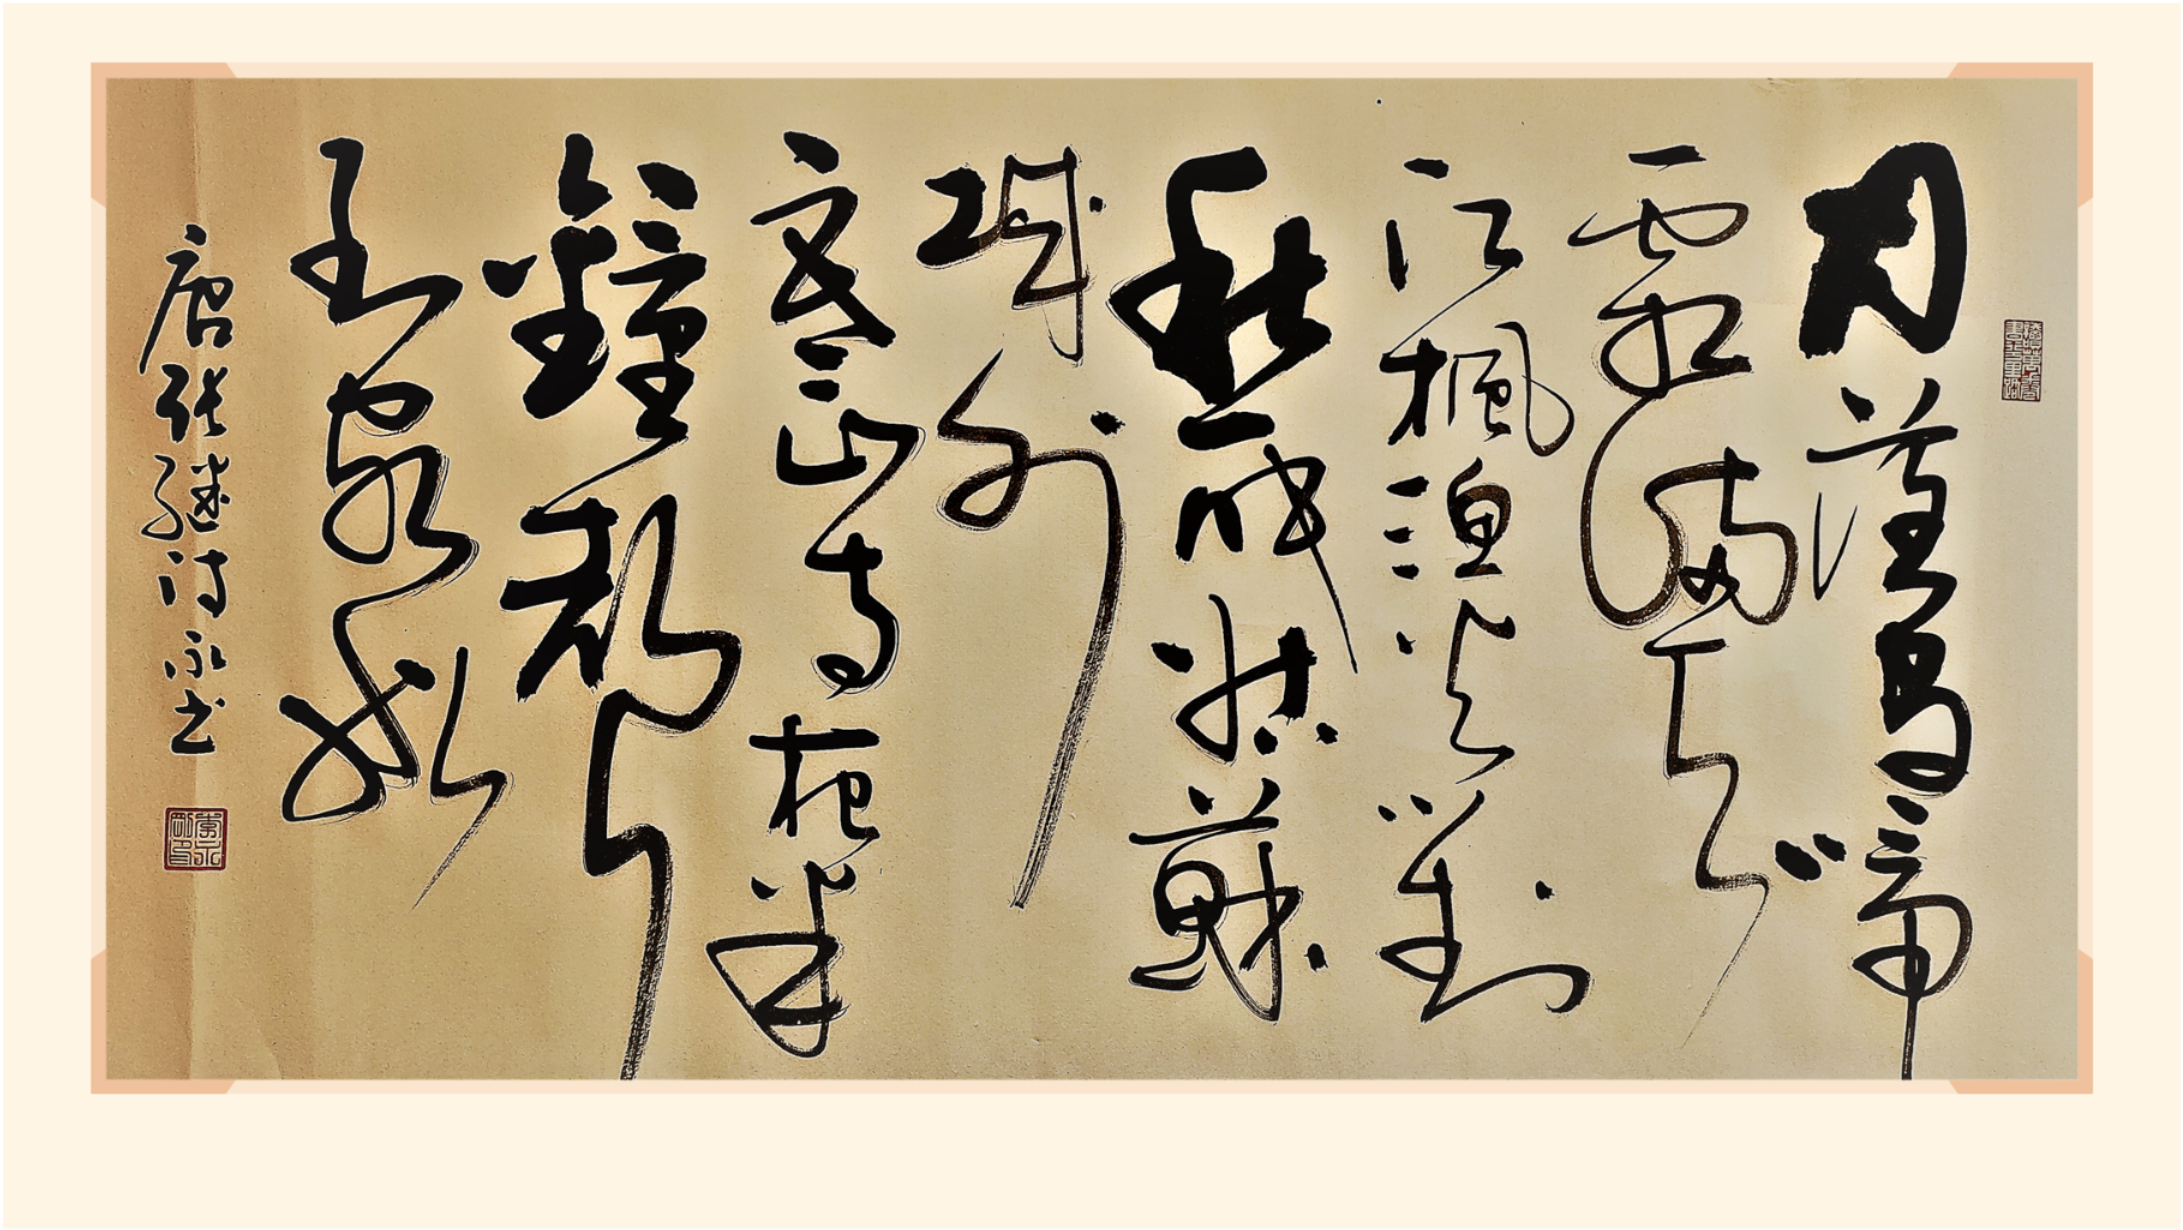 月落烏啼
霜滿天
江楓漁火對
愁眠姑蘇
城外
寒山寺夜半
鐘聲
到客船
唐張繼詩永書
李永剛印